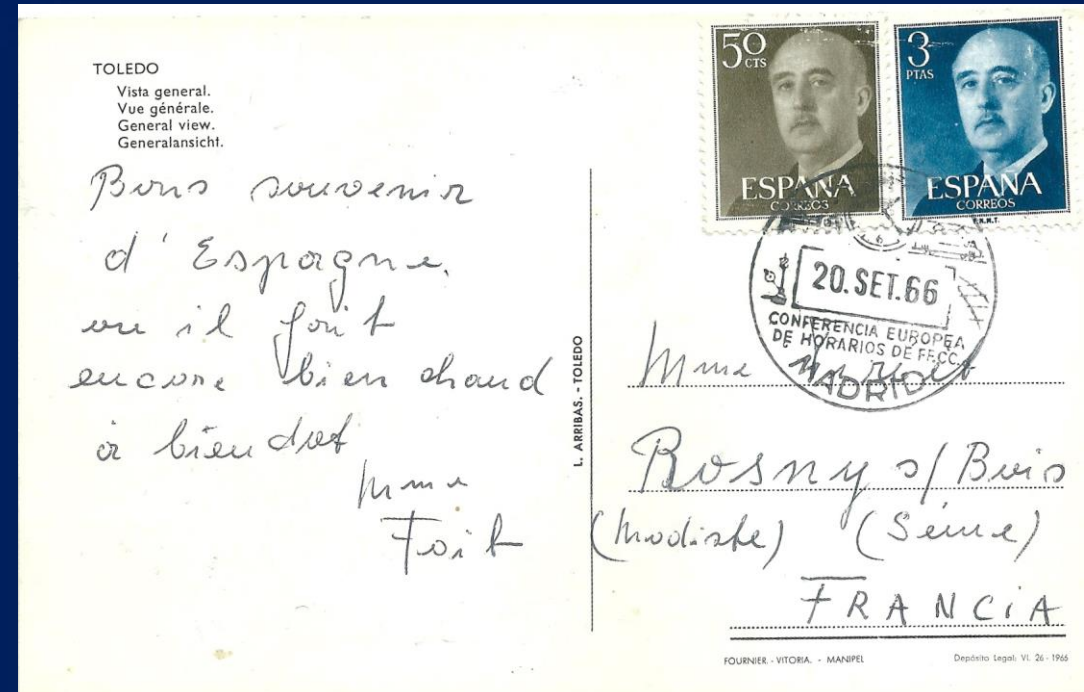 TOLEDO
Vista general.
Vue générale.
General view.
Generalansicht.
Bons souvenir
d'Espagne,
ou il fait
encore bien chaud
à biendot
Mme
Foit
L. ARRIBAS. - TOLEDO
50
CTS
ESPAÑA
CORREOS
3
PTAS
ESPAÑA
CORREOS
F.N.M.T.
20. SET. 66
CONFERENCIA EUROPEA
DE HORARIOS DE FF.CC.
MADRID
Mme
Rosny s/ Bois
(Modiste) (Seine)
FRANCiA
FOURNIER. - VITORIA. - MANIPEL
Depósito Legal: VI. 26 - 1966